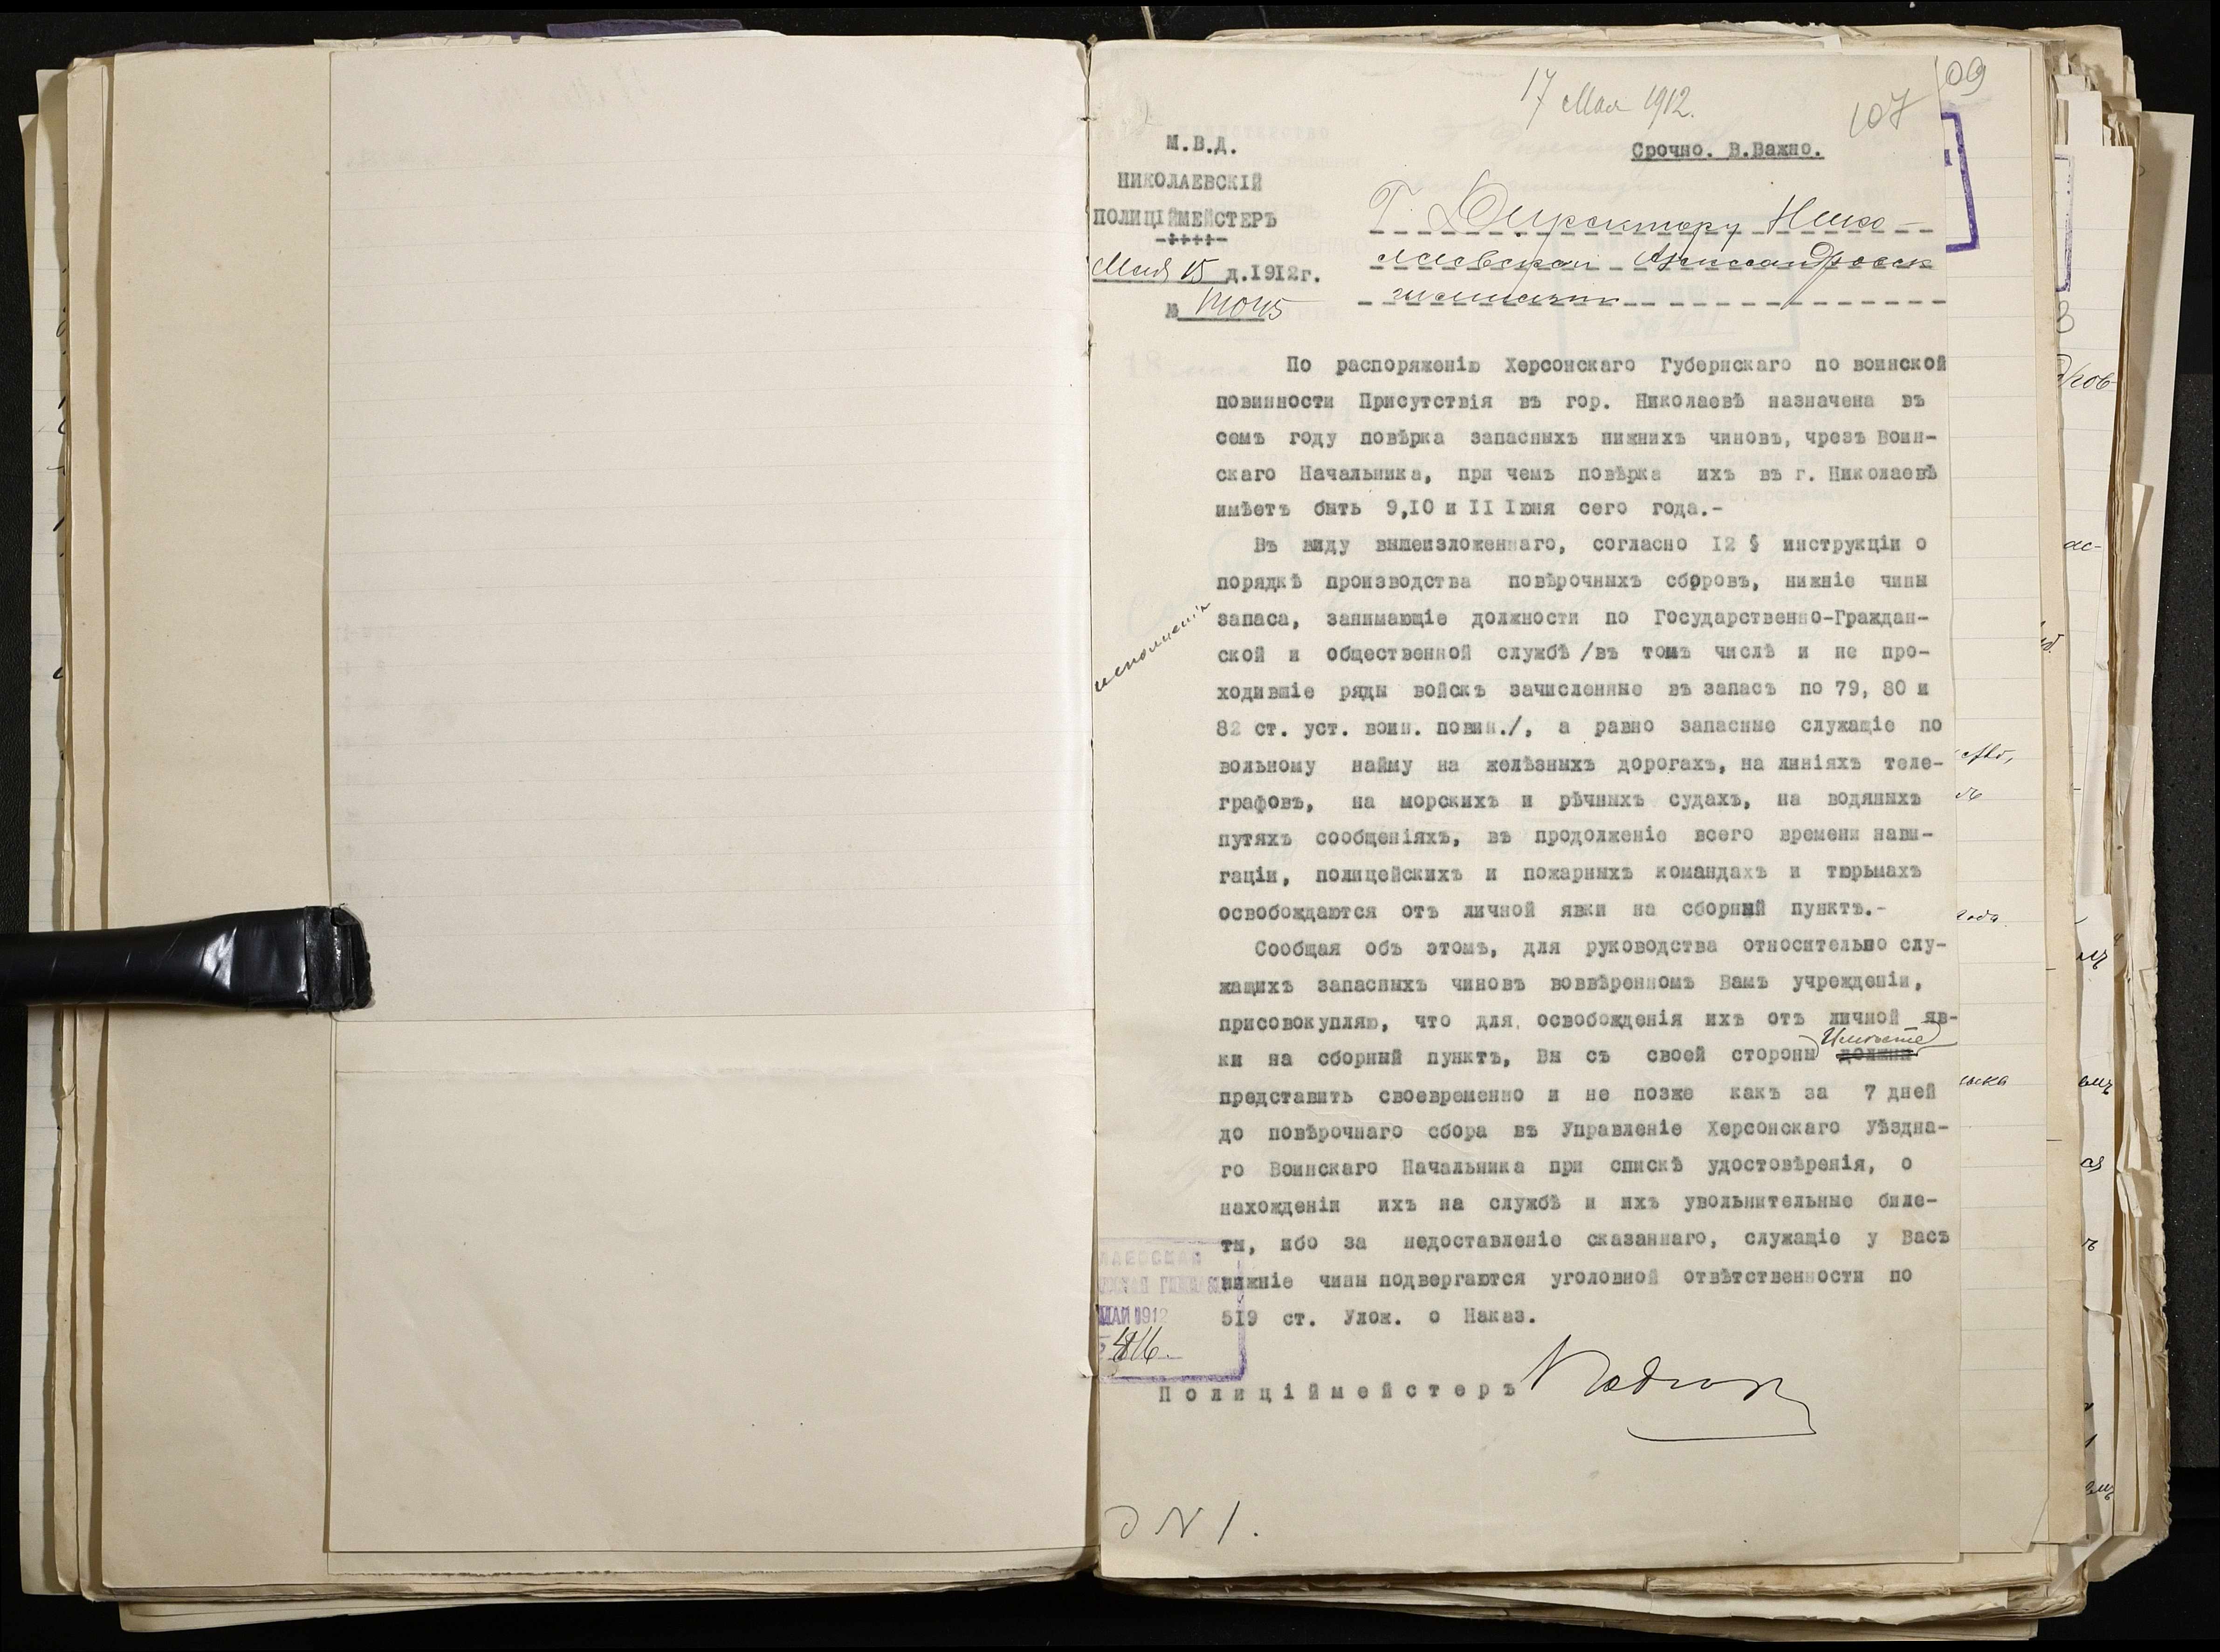 17 Мая 1912.
109
107
М.В.Д.
НИКОЛАЕВСКІЙ
ПОЛИЦІЙМЕЙСТЕРЪ
Мая 15 д.1912г.
№
Срочно. В.Важно.
Г. Директору Нико-
лаевской Александровск
гимназіи
По распоряженію Херсонскаго Губернскаго по воинской
повинности Присутствія въ гор. Николаевѣ назначена въ
семъ году повѣрка запасныхъ нижнихъ чиновъ, чрезъ Воин-
скаго Начальника, при чемъ повѣрка ихъ въ г. Николаевѣ
имѣетъ быть 9,IO и II Іюня сего года.-
Въ виду вышеизложеннаго, согласно I2 § инструкціи о
порядкѣ производства повѣрочныхъ сборовъ, нижніе чины
запаса, занимающіе должности по Государственно-Граждан-
ской и общественной службѣ /въ томъ числѣ и не про-
ходившіе ряды войскъ зачисленные въ запасъ по 79, 80 и
82 ст. уст. воин. повин./, а равно запасные служащіе по
вольному найму на желѣзныхъ дорогахъ, на линіяхъ теле-
графовъ, на морскихъ и рѣчныхъ судахъ, на водяныхъ
путяхъ сообщеніяхъ, въ продолженіе всего времени нави-
гаціи, полицейскихъ и пожарныхъ командахъ и тюрьмахъ
освобождаются отъ личной явки на сборный пунктъ.-
исполненія
Сообщая объ этомъ, для руководства относительно слу-
жащихъ запасныхъ чиновъ воввѣренномъ Вамъ учрежденіи,
присовокупляю, что для освобожденія ихъ отъ личной яв-
ки на сборный пунктъ, Вы съ своей стороны должны
Имѣете
представить своевременно и не позже какъ за 7 дней
до повѣрочнаго сбора въ Управленіе Херсонскаго Уѣздна-
го Воинскаго Начальника при спискѣ удостовѣренія, о
нахожденіи ихъ на службѣ и ихъ увольнительные биле-
ты, ибо за недоставленіе сказаннаго, служащіе у Васъ
нижніе чины подвергаются уголовной отвѣтственности по
5I9 ст. Улож. о Наказ.
ЛАЕВСКАЯ
МАЙ 1912
Полиціймейстеръ
Д N 1.